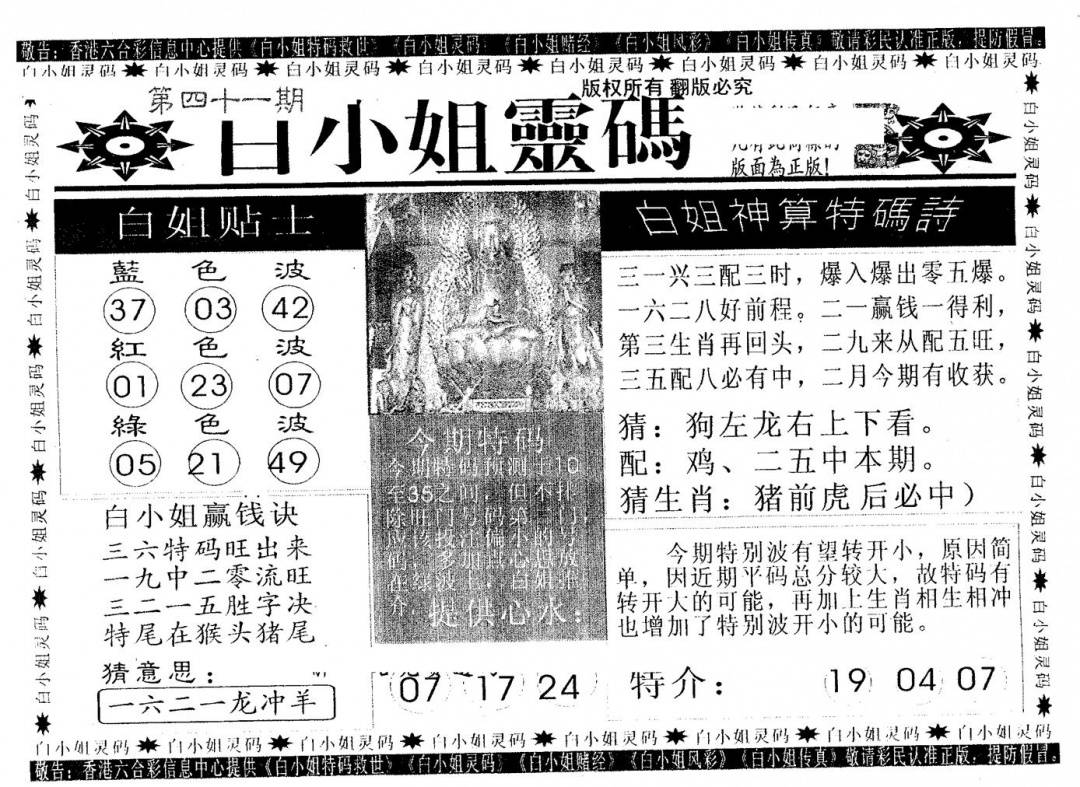 敬告：香港六合彩信息中心提供《白小姐特码救世》《白小姐灵码》《白小姐赌经》《白小姐风彩》《白小姐传真》敬请彩民认准正版，提防假冒。
白小姐灵码 白小姐灵码 白小姐灵码 白小姐灵码 白小姐灵码 白小姐灵码 白小姐灵码 白小姐灵码
版权所有 翻版必究
第四十一期
白小姐靈碼
版面為正版！
白姐贴士
藍色波
37 03 42
紅色波
01 23 07
綠色波
05 21 49
白小姐赢钱诀
三六特码旺出来
一九中二零流旺
三二一五胜字决
特尾在猴头猪尾
猜意思：
一六二一龙冲羊
今期特码
今期特码预测于10
至35之间，但不排
提供心水：
07 17 24
白姐神算特碼詩
三一兴三配三时，爆入爆出零五爆。
一六二八好前程。二一赢钱一得利，
第三生肖再回头，二九来从配五旺，
三五配八必有中，二月今期有收获。
猜：狗左龙右上下看。
配：鸡、二五中本期。
猜生肖：猪前虎后必中）
今期特别波有望转开小，原因简
单，因近期平码总分较大，故特码有
转开大的可能，再加上生肖相生相冲
也增加了特别波开小的可能。
特介： 19 04 07
白小姐灵码 白小姐灵码 白小姐灵码 白小姐灵码 白小姐灵码 白小姐灵码 白小姐灵码 白小姐灵码
敬告：香港六合彩信息中心提供《白小姐特码救世》《白小姐灵码》《白小姐赌经》《白小姐风彩》《白小姐传真》敬请彩民认准正版，提防假冒。